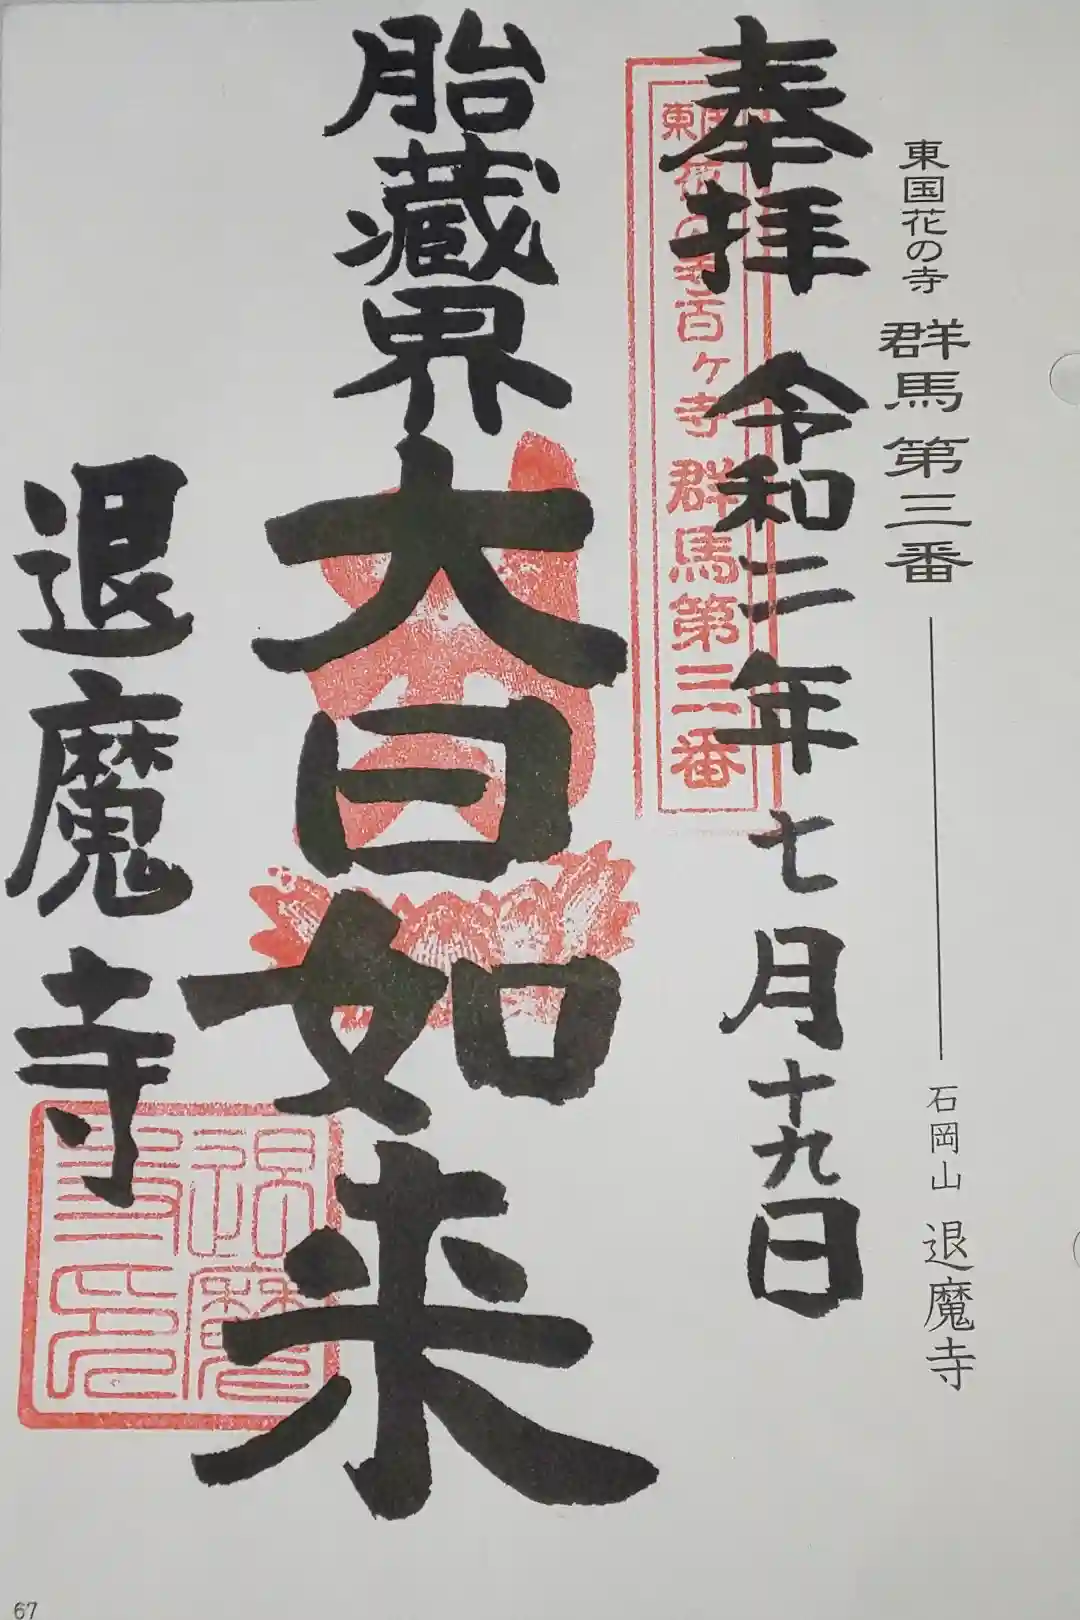 東国花の寺 群馬第三番 石岡山 退魔寺
奉拝 令和二年七月十九日
東国花の寺百ヶ寺 群馬第三番
胎蔵界
大日如来
退魔寺
退魔
寺印
67